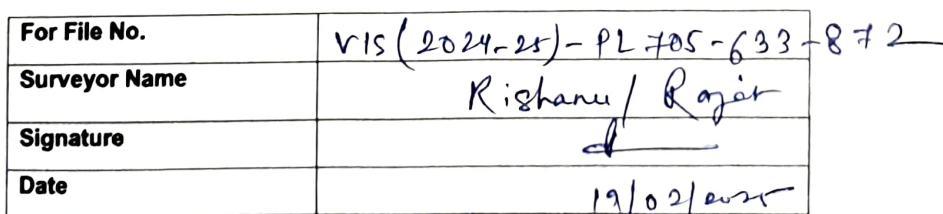 For File No. VIS(2024-25)-PL705-633-872
Surveyor Name Rishanu / Rajat
Signature
Date 19/02/2025